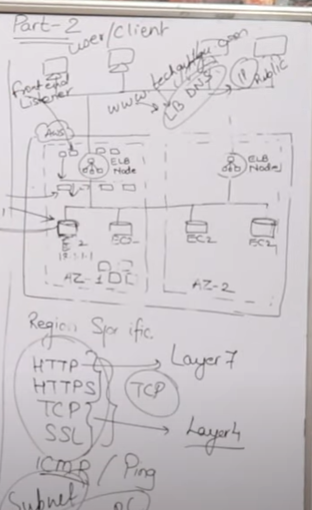 Part-2
user/client
Front end
Listener
LB DNS
Public
AWS
ELB
Node
ELB
Node
EC2
EC2
AZ-1
AZ-2
Region Specific.
HTTP
HTTPS
TCP
SSL
Layer 7
TCP
Layer 4
ICMP / Ping
Subnet